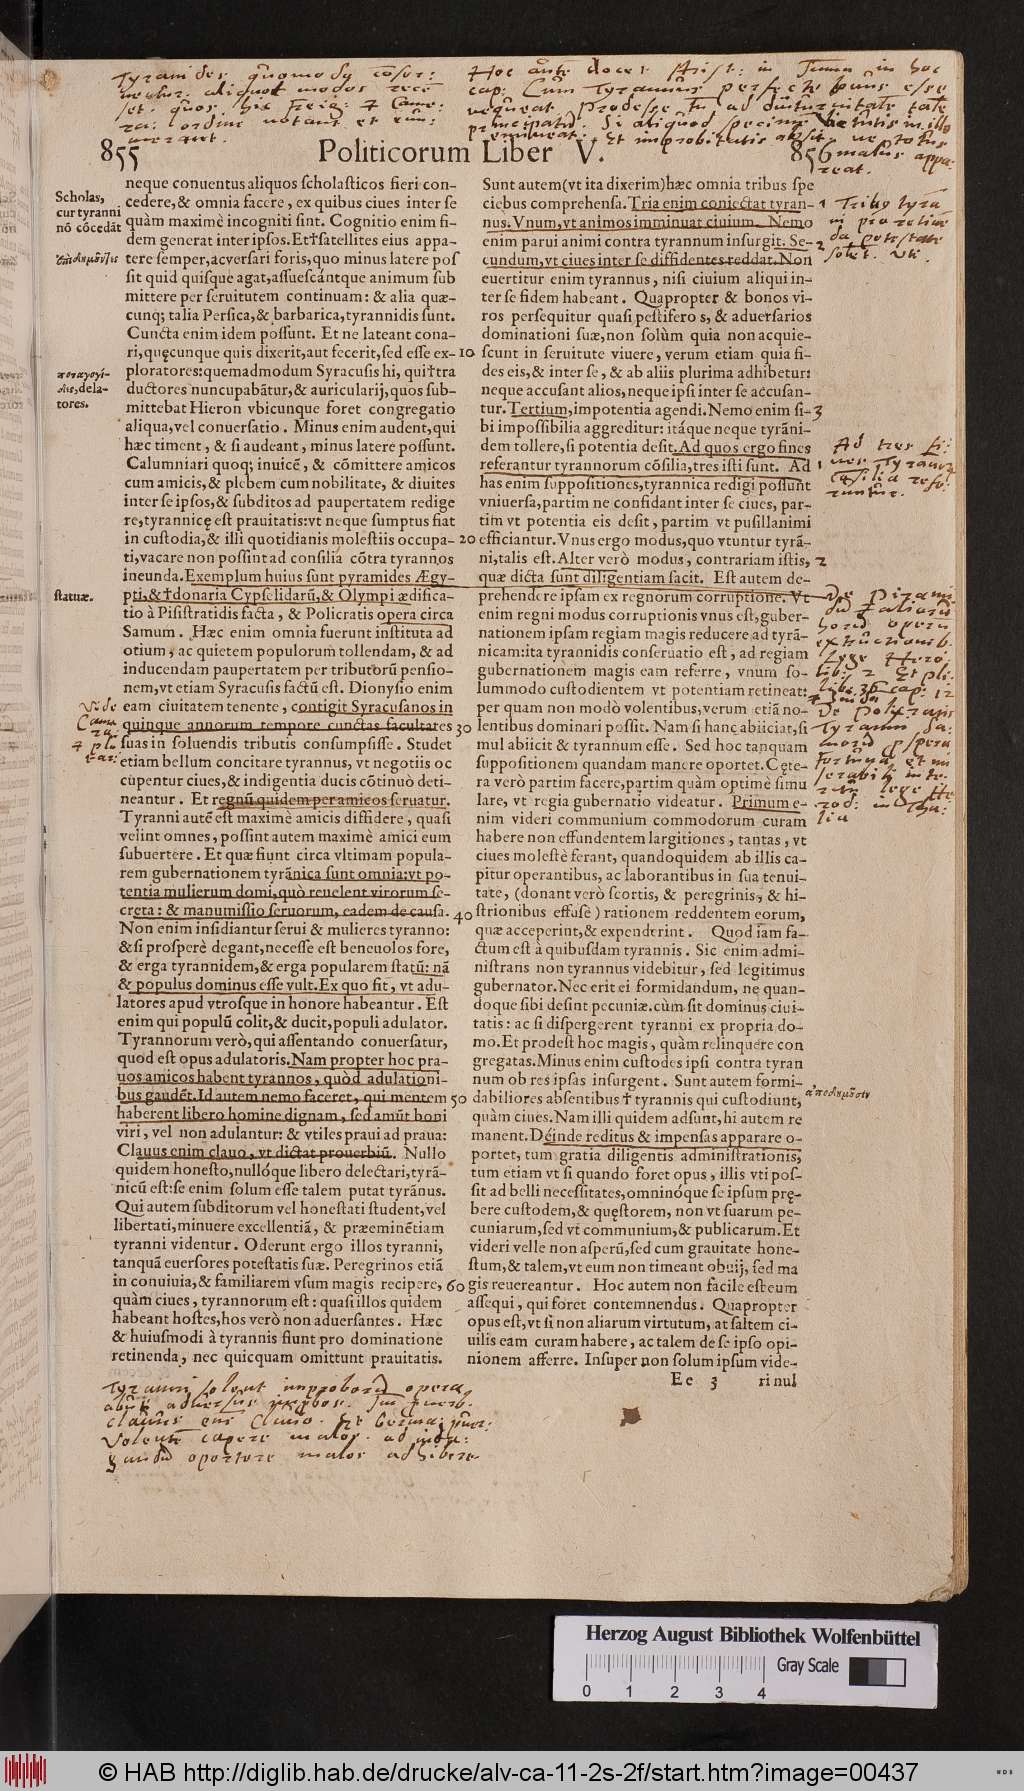 855
Politicorum Liber V.
856
Scholas,
cur tyranni
nõ cōcedāt
neque conuentus aliquos ſcholaſticos fieri con-
cedere, & omnia facere, ex quibus ciues inter ſe
quàm maximè incogniti ſint. Cognitio enim fi-
dem generat inter ipſos. Et†ſatellites eius appa-
tere ſemper, acverſari foris, quo minus latere poſ
ſit quid quiſque agat, aſſueſcántque animum ſub
mittere per ſeruitutem continuam: & alia quæ-
cunq; talia Perſica, & barbarica, tyrannidis ſunt.
Cuncta enim idem poſſunt. Et ne lateant cona-
ri, quęcunque quis dixerit, aut fecerit, ſed eſſe ex-
ploratores: quemadmodum Syracuſis hi, qui†tra
ductores nuncupabātur, & auricularij, quos ſub-
mittebat Hieron vbicunque foret congregatio
aliqua, vel conuerſatio. Minus enim audent, qui
hæc timent, & ſi audeant, minus latere poſſunt.
Calumniari quoq; inuicē, & cōmittere amicos
cum amicis, & plebem cum nobilitate, & diuites
inter ſe ipſos, & ſubditos ad paupertatem redige
re, tyrannicę eſt prauitatis: vt neque ſumptus fiat
in cuſtodia, & illi quotidianis moleſtiis occupa-
ti, vacare non poſſint ad conſilia cōtra tyrannos
ineunda. Exemplum huius ſunt pyramides Ægy-
pti, & †donaria Cypſelidarū, & Olympi ædifica-
tio à Piſiſtratidis facta, & Policratis opera circa
Samum. Hæc enim omnia fuerunt inſtituta ad
otium, ac quietem populorum tollendam, & ad
inducendam paupertatem per tributorū penſio-
nem, vt etiam Syracuſis factū eſt. Dionyſio enim
eam ciuitatem tenente, contigit Syracuſanos in
quinque annorum tempore cunctas facultates
ſuas in ſoluendis tributis conſumpſiſſe. Studet
etiam bellum concitare tyrannus, vt negotiis oc
cupentur ciues, & indigentia ducis cōtinuò deti-
neantur. Et regnū quidem per amicos ſeruatur.
Tyranni autē eſt maximè amicis diffidere, quaſi
velint omnes, poſſint autem maximè amici eum
ſubuertere. Et quæ fiunt circa vltimam popula-
rem gubernationem tyrānica ſunt omnia: vt po-
tentia mulierum domi, quò reuelent virorum ſe-
creta: & manumiſſio ſeruorum, eadem de cauſa.
Non enim inſidiantur ſerui & mulieres tyranno:
& ſi proſperè degant, neceſſe eſt beneuolos fore,
& erga tyrannidem, & erga popularem ſtatū: nā
& populus dominus eſſe vult. Ex quo fit, vt adu-
latores apud vtroſque in honore habeantur. Eſt
enim qui populū colit, & ducit, populi adulator.
Tyrannorum verò, qui aſſentando conuerſatur,
quod eſt opus adulatoris. Nam propter hoc pra-
uos amicos habent tyrannos, quòd adulationi-
bus gaudēt. Id autem nemo faceret, qui mentem
haberent libero homine dignam, ſed amāt boni
viri, vel non adulantur: & vtiles praui ad praua:
Clauus enim clauo, vt dictat prouerbiū. Nullo
quidem honeſto, nullóque libero delectari, tyrā-
nicū eſt: ſe enim ſolum eſſe talem putat tyrānus.
Qui autem ſubditorum vel honeſtati ſtudent, vel
libertati, minuere excellentiā, & præeminētiam
tyranni videntur. Oderunt ergo illos tyranni,
tanquā euerſores poteſtatis ſuæ. Peregrinos etiā
in conuiuia, & familiarem vſum magis recipere,
quàm ciues, tyrannorum eſt: quaſi illos quidem
habeant hoſtes, hos verò non aduerſantes. Hæc
& huiuſmodi à tyrannis fiunt pro dominatione
retinenda, nec quicquam omittunt prauitatis.
delatores.
ſtatuæ.
10
20
30
40
50
60
Sunt autem (vt ita dixerim) hæc omnia tribus ſpe
ciebus comprehenſa. Tria enim coniectat tyran-
nus. Vnum, vt animos imminuat ciuium. Nemo
enim parui animi contra tyrannum inſurgit. Se-
cundum, vt ciues inter ſe diffidentes reddat. Non
euertitur enim tyrannus, niſi ciuium aliqui in-
ter ſe fidem habeant. Quapropter & bonos vi-
ros perſequitur quaſi peſtiferos, & aduerſarios
dominationi ſuæ, non ſolùm quia non acquie-
ſcunt in ſeruitute viuere, verum etiam quia fi-
des eis, & inter ſe, & ab aliis plurima adhibetur:
neque accuſant alios, neque ipſi inter ſe accuſan-
tur. Tertium, impotentia agendi. Nemo enim ſi-
bi impoſſibilia aggreditur: itáque neque tyrāni-
dem tollere, ſi potentia deſit. Ad quos ergo fines
referantur tyrannorum cōſilia, tres iſti ſunt. Ad
has enim ſuppoſitiones, tyrannica redigi poſſunt
vniuerſa, partim ne confidant inter ſe ciues, par-
tim vt potentia eis deſit, partim vt puſillanimi
efficiantur. Vnus ergo modus, quo vtuntur tyrā-
ni, talis eſt. Alter verò modus, contrariam iſtis,
quæ dicta ſunt diligentiam facit. Eſt autem de-
prehendere ipſam ex regnorum corruptione. Vt
enim regni modus corruptionis vnus eſt, guber-
nationem ipſam regiam magis reducere ad tyrā-
nicam: ita tyrannidis conſeruatio eſt, ad regiam
gubernationem magis eam referre, vnum ſo-
lummodo cuſtodientem vt potentiam retineat:
per quam non modò volentibus, verum etiā no-
lentibus dominari poſſit. Nam ſi hanc abiiciat, ſi
mul abiicit & tyrannum eſſe. Sed hoc tanquam
ſuppoſitionem quandam manere oportet. Cęte-
ra verò partim facere, partim quàm optimè ſimu
lare, vt regia gubernatio videatur. Primum e-
nim videri communium commodorum curam
habere non effundentem largitiones, tantas, vt
ciues moleſtè ferant, quandoquidem ab illis ca-
pitur operantibus, ac laborantibus in ſua tenui-
tate, (donant verò ſcortis, & peregrinis, & hi-
ſtrionibus effuſè) rationem reddentem eorum,
quæ acceperint, & expenderint. Quod iam fa-
ctum eſt à quibuſdam tyrannis. Sic enim admi-
niſtrans non tyrannus videbitur, ſed legitimus
gubernator. Nec erit ei formidandum, ne quan-
doque ſibi deſint pecuniæ. cùm ſit dominus ciui-
tatis: ac ſi diſpergerent tyranni ex propria do-
mo. Et prodeſt hoc magis, quàm relinquere con
gregatas. Minus enim cuſtodes ipſi contra tyran
num ob res ipſas inſurgent. Sunt autem formi-
dabiliores abſentibus † tyrannis qui cuſtodiunt,
quàm ciues. Nam illi quidem adſunt, hi autem re
manent. Déinde reditus & impenſas apparare o-
portet, tum gratia diligentis adminiſtrationis,
tum etiam vt ſi quando foret opus, illis vti poſ-
ſit ad belli neceſſitates, omninóque ſe ipſum prę-
bere cuſtodem, & quęſtorem, non vt ſuarum pe-
cuniarum, ſed vt communium, & publicarum. Et
videri velle non aſperū, ſed cum grauitate hone-
ſtum, & talem, vt eum non timeant obuij, ſed ma
gis reuereantur. Hoc autem non facile eſt eum
aſſequi, qui foret contemnendus. Quapropter
opus eſt, vt ſi non aliarum virtutum, at ſaltem ci-
uilis eam curam habere, ac talem de ſe ipſo opi-
nionem afferre. Inſuper non ſolum ipſum vide-
Ee 3
ri nul
Herzog August Bibliothek Wolfenbüttel
Gray Scale
0 1 2 3 4
© HAB http://diglib.hab.de/drucke/alv-ca-11-2s-2f/start.htm?image=00437